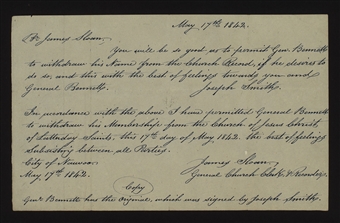 May 17th 1842.
Br. James Sloan,
You will be so good as to permit Gen. Bennett
to withdraw his Name from the Church Record, if he desires to
do so, and this with the best of feelings towards you and
General Bennett.
Joseph Smith.
In accordance with the above I have permitted General Bennett
to withdraw his Membership from the Church of Jesus Christ,
of Latterday Saints, this 17th day of May, 1842. the best of feelings
Subsisting between all Parties.
City of Nauvoo James Sloan,
May 17th 1842. General Church Clerk, & Recorder.
Copy
Genl. Bennett has the Original, which was signed by Joseph Smith.